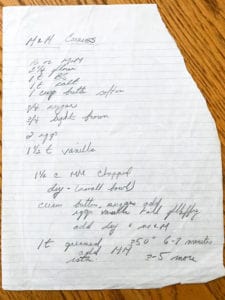 M&M Cookies
oz M&M
2 1/4 flour
1 t BS
1 t salt
1 cup butter soften
3/4 sugar
3/4 light brown
2 eggs
1 1/2 t vanilla
1 1/2 c MM chopped
dry - (small bowl)
cream butter, sugars add
eggs vanilla fluffy
add dry + M&M
1 t greased 350° 6-8 minutes
MM
3-5 more